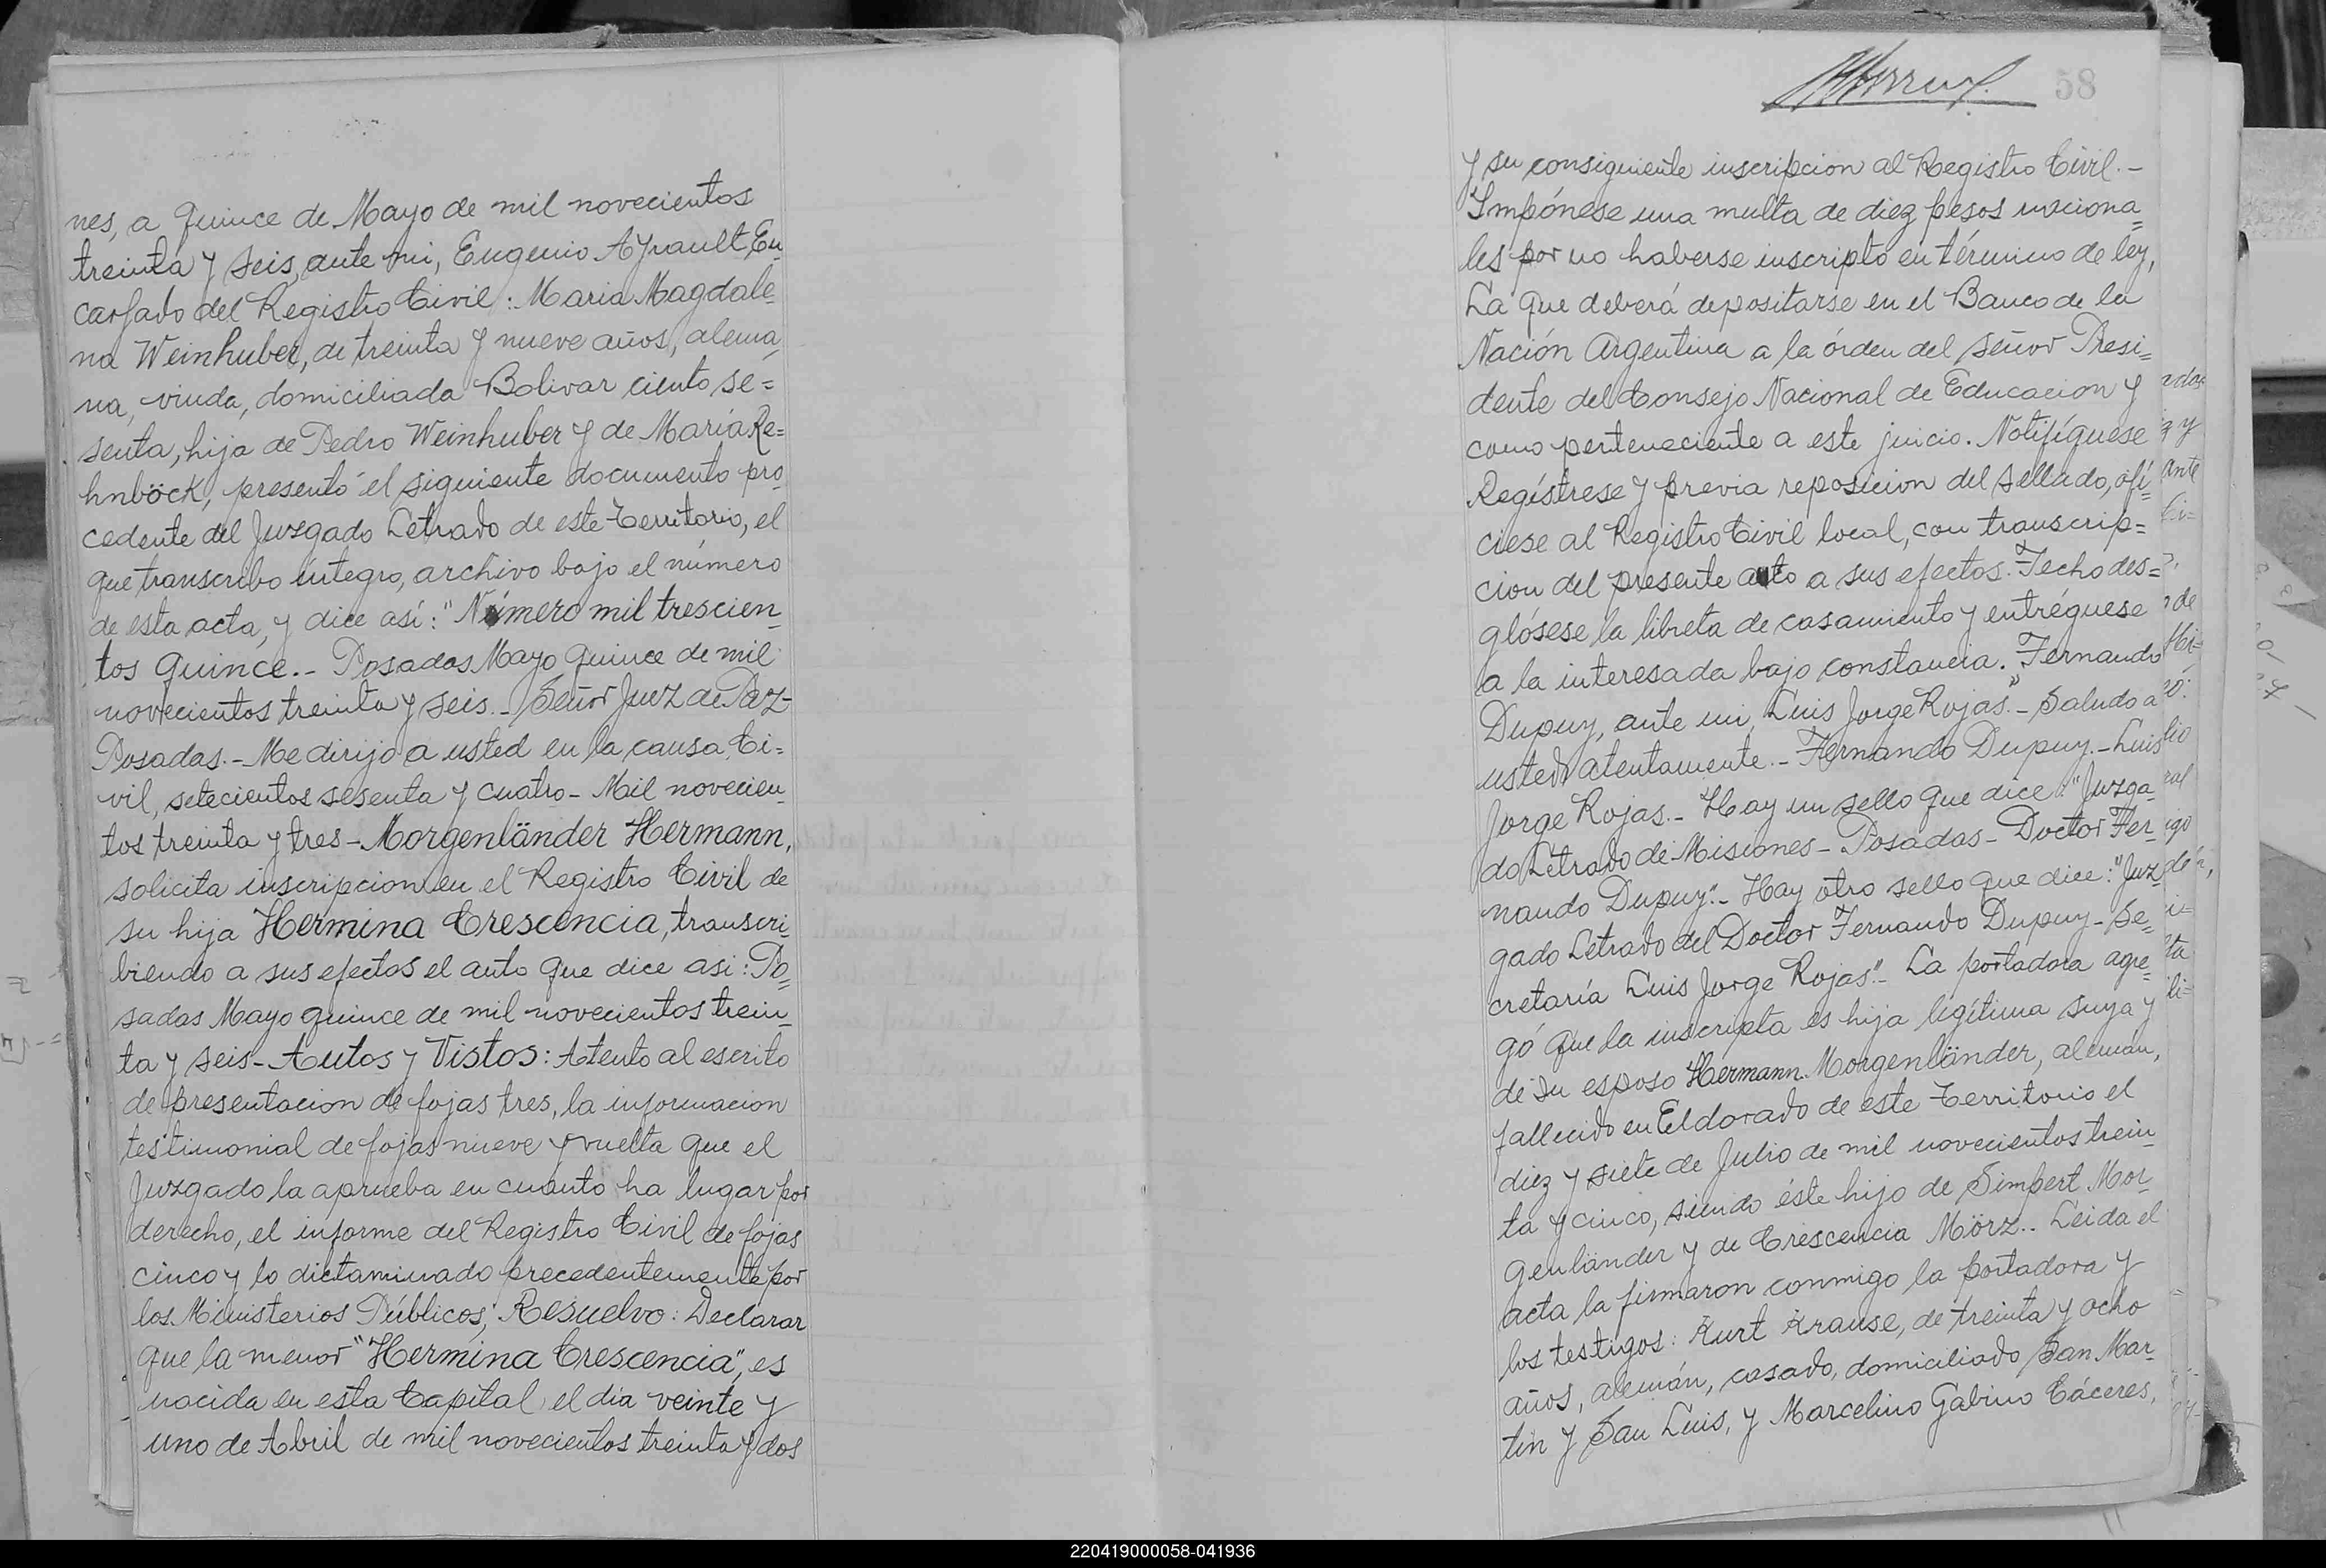 nes, a quince de Mayo de mil novecientos
treinta y seis, ante mi, Eugenio Ayrault, En
cargado del Registro Civil: Maria Magdale=
na Weinhuber, de treinta y nueve años, alema
na, viuda, domiciliada Bolivar ciento se=
senta, hija de Pedro Weinhuber y de María Re=
hnböck, presentó el siguiente documento pro
cedente del Juzgado Letrado de este Territorio, el
que transcribo íntegro, archivo bajo el número
de esta acta, y dice así: "Número mil trescien
tos quince.- Posadas Mayo quince de mil
novecientos treinta y seis.- Señor Juez de Paz-
Posadas.- Me dirijo a usted en la causa Ci=
vil, setecientos sesenta y cuatro- Mil novecien
tos treinta y tres- Morgenländer Hermann,
solicita inscripcion en el Registro Civil de
su hija Hermina Crescencia, transcri=
biendo a sus efectos el auto que dice asi: Po=
sadas Mayo quince de mil novecientos trein
ta y seis- Autos y Vistos: Atento al escrito
de presentacion de fojas tres, la informacion
testimonial de fojas nueve y vuelta que el
Juzgado la aprueba en cuanto ha lugar por
derecho, el informe del Registro Civil de fojas
cinco y lo dictaminado precedentemente por
los Ministerios Públicos; Resuelvo: Declarar
que la menor "Hermina Crescencia", es
nacida en esta Capital el día veinte y
uno de Abril de mil novecientos treinta y dos
58
y su consiguiente inscripcion al Registro Civil.-
Impónese una multa de diez pesos naciona=
les por no haberse inscripto en término de ley,
La que deberá depositarse en el Banco de la
Nación Argentina a la órden del señor Presi=
dente del Consejo Nacional de Educacion y
como perteneciente a este juicio. Notifíquese
Regístrese y previa reposicion del sellado, ofi=
ciese al Registro Civil local, con transcrip=
cion del presente auto a sus efectos. Fecho des=
glósese la libreta de casamiento y entréguese
a la interesada bajo constancia. Fernando
Dupuy, ante mi, Luis Jorge Rojas".- Saludo a
usted atentamente.- Fernando Dupuy.- Luis
Jorge Rojas.- Hay un sello que dice: "Juzga
do Letrado de Misiones- Posadas- Doctor Fer
nando Dupuy".- Hay otro sello que dice: "Juz
gado Letrado del Doctor Fernando Dupuy- Se=
cretaría Luis Jorge Rojas".- La portadora agre=
gó que la inscripta es hija legítima suya y
de su esposo Hermann Morgenländer, aleman,
fallecido en Eldorado de este Territorio el
diez y siete de Julio de mil novecientos trein
ta y cinco, siendo éste hijo de Simpert Mor
genländer y de Crescencia Mörz.. Leida el
acta la firmaron conmigo la portadora y
los testigos: Kurt Krause, de treinta y ocho
años, alemán, casado, domiciliado San Mar
tin y San Luis, y Marcelino Gabino Cáceres,
220419000058-041936